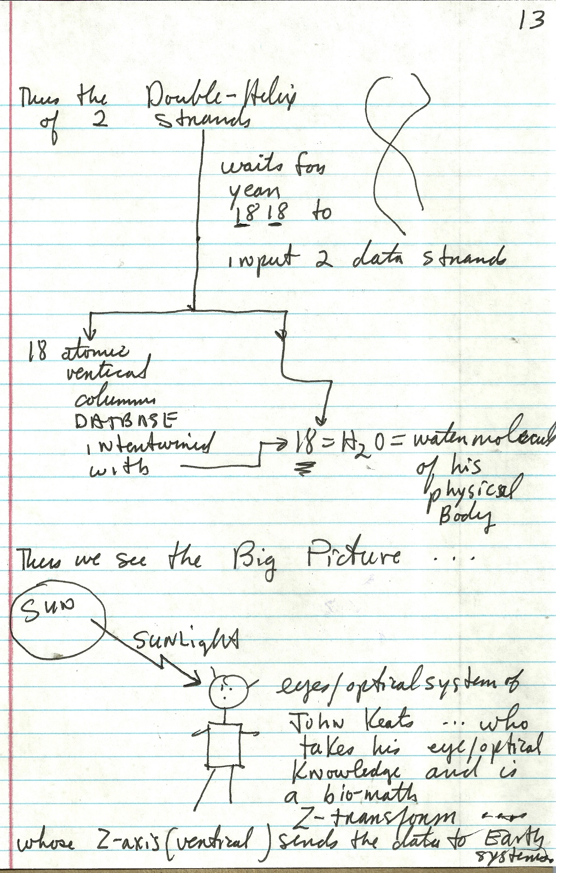 13
Thus the Double-Helix
of 2 strands
waits for
year
1818 to
input 2 data strand
18 atomic
vertical
columns
DATBASE
intertwined
with
18 = H2O = water molecule
of his
physical
Body
Thus we see the Big Picture ....
SUN
SUNLight
eyes/optical system of
John Keats ... who
takes his eye/optical
knowledge and is
a bio-math
Z-transform ....
whose Z-axis (vertical) sends the data to Earth
systems.